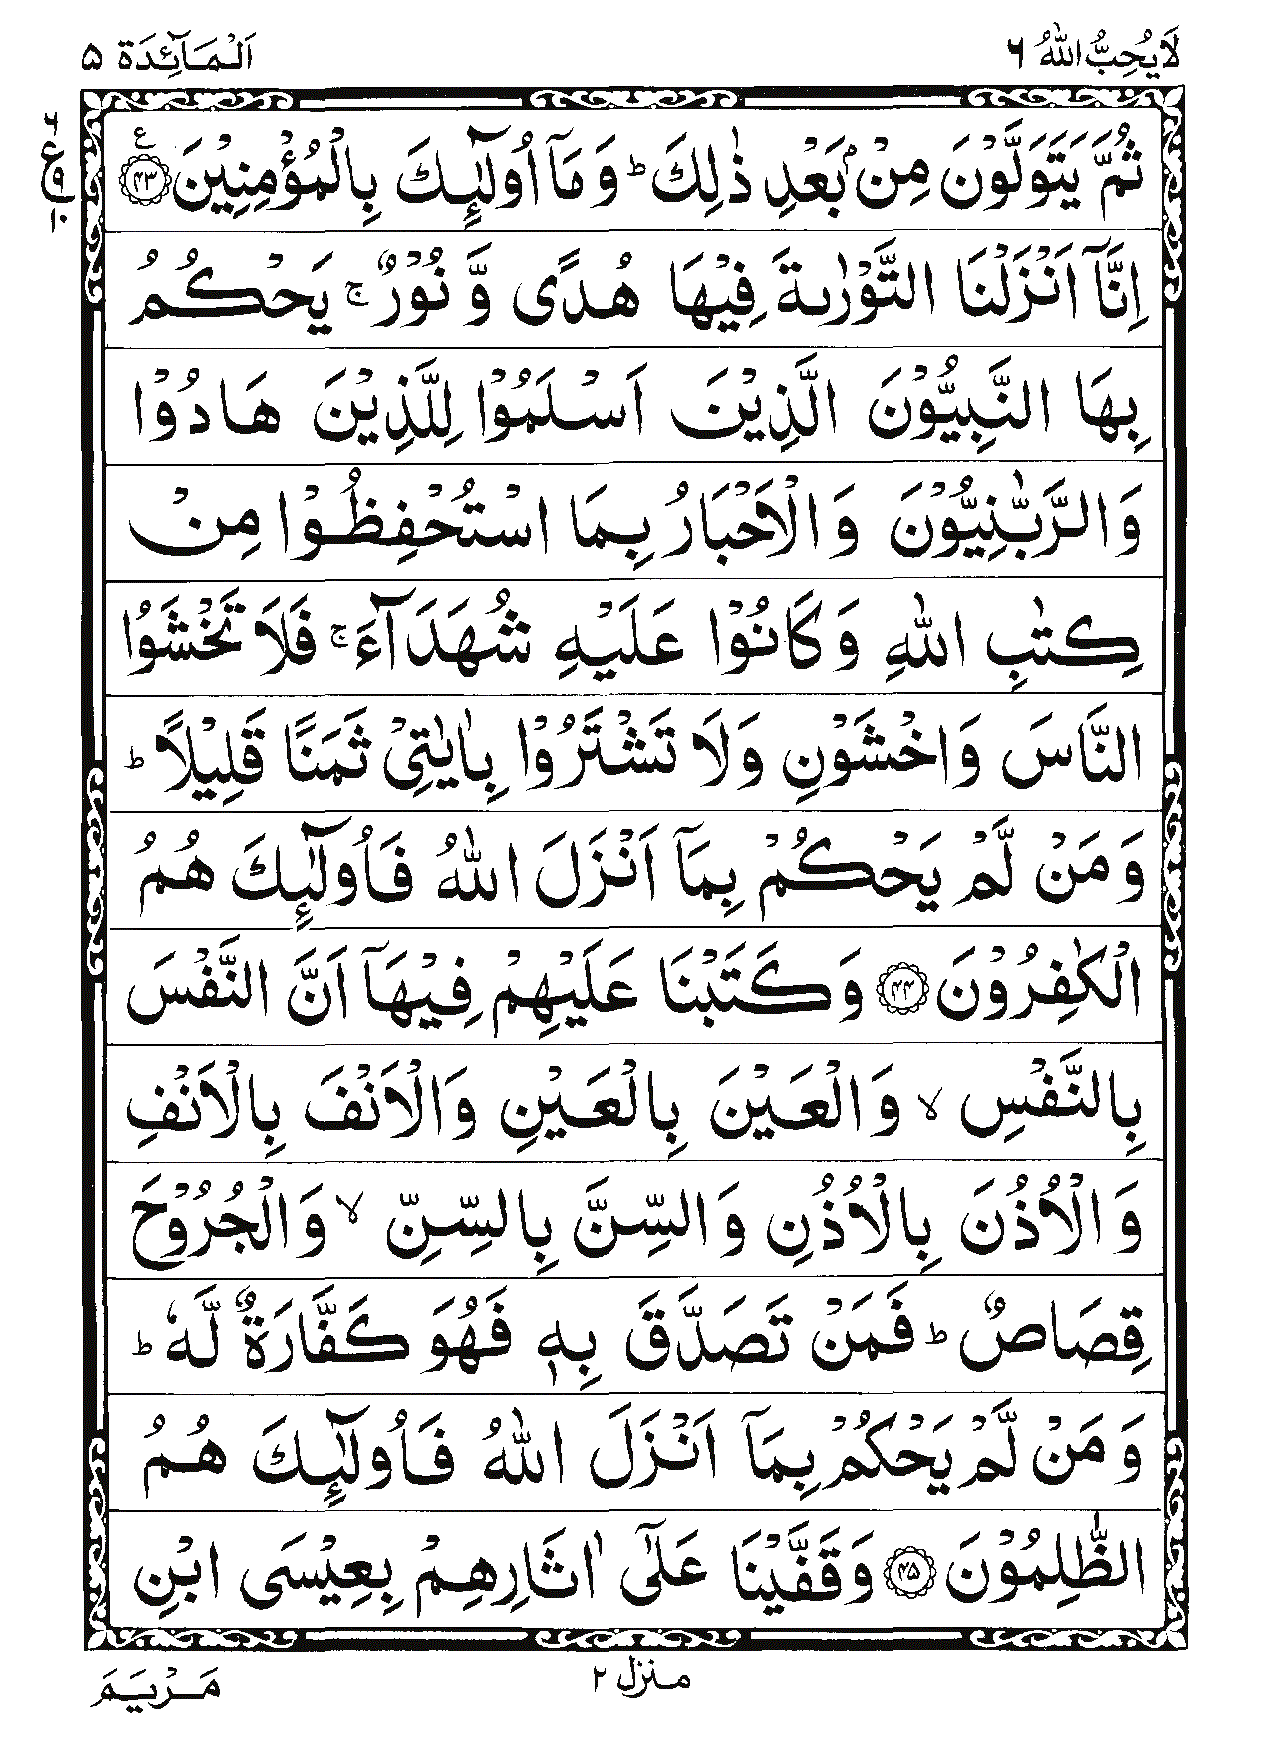 لَا يُحِبُّ اللّٰهُ ٦
اَلْمَآئِدَة ٥
ثُمَّ يَتَوَلَّوْنَ مِنْۢ بَعْدِ ذٰلِكَ ؕ وَ مَاۤ اُولٰٓئِكَ بِالْمُؤْمِنِيْنَ ﴿۴۳﴾ ع
ع ٦ ٩ ١٠
اِنَّاۤ اَنْزَلْنَا التَّوْرٰىةَ فِيْهَا هُدًى وَّ نُوْرٌ ۚ يَحْكُمُ
بِهَا النَّبِيُّوْنَ الَّذِيْنَ اَسْلَمُوْا لِلَّذِيْنَ هَادُوْا
وَالرَّبّٰنِيُّوْنَ وَ الْاَحْبَارُ بِمَا اسْتُحْفِظُوْا مِنْ
كِتٰبِ اللّٰهِ وَ كَانُوْا عَلَيْهِ شُهَدَآءَ ۚ فَلَا تَخْشَوُا
النَّاسَ وَاخْشَوْنِ وَلَا تَشْتَرُوْا بِاٰيٰتِيْ ثَمَنًا قَلِيْلًا ؕ
وَ مَنْ لَّمْ يَحْكُمْ بِمَاۤ اَنْزَلَ اللّٰهُ فَاُولٰٓئِكَ هُمُ
الْكٰفِرُوْنَ ﴿۴۴﴾ وَكَتَبْنَا عَلَيْهِمْ فِيْهَاۤ اَنَّ النَّفْسَ
بِالنَّفْسِ ۙ وَ الْعَيْنَ بِالْعَيْنِ وَالْاَنْفَ بِالْاَنْفِ
وَ الْاُذُنَ بِالْاُذُنِ وَ السِّنَّ بِالسِّنِّ ۙ وَ الْجُرُوْحَ
قِصَاصٌ ؕ فَمَنْ تَصَدَّقَ بِهٖ فَهُوَ كَفَّارَةٌ لَّهٗ ؕ
وَ مَنْ لَّمْ يَحْكُمْ بِمَاۤ اَنْزَلَ اللّٰهُ فَاُولٰٓئِكَ هُمُ
الظّٰلِمُوْنَ ﴿۴۵﴾ وَقَفَّيْنَا عَلٰۤى اٰثَارِهِمْ بِعِيْسَى ابْنِ
منزل ٢
مَرْيَمَ